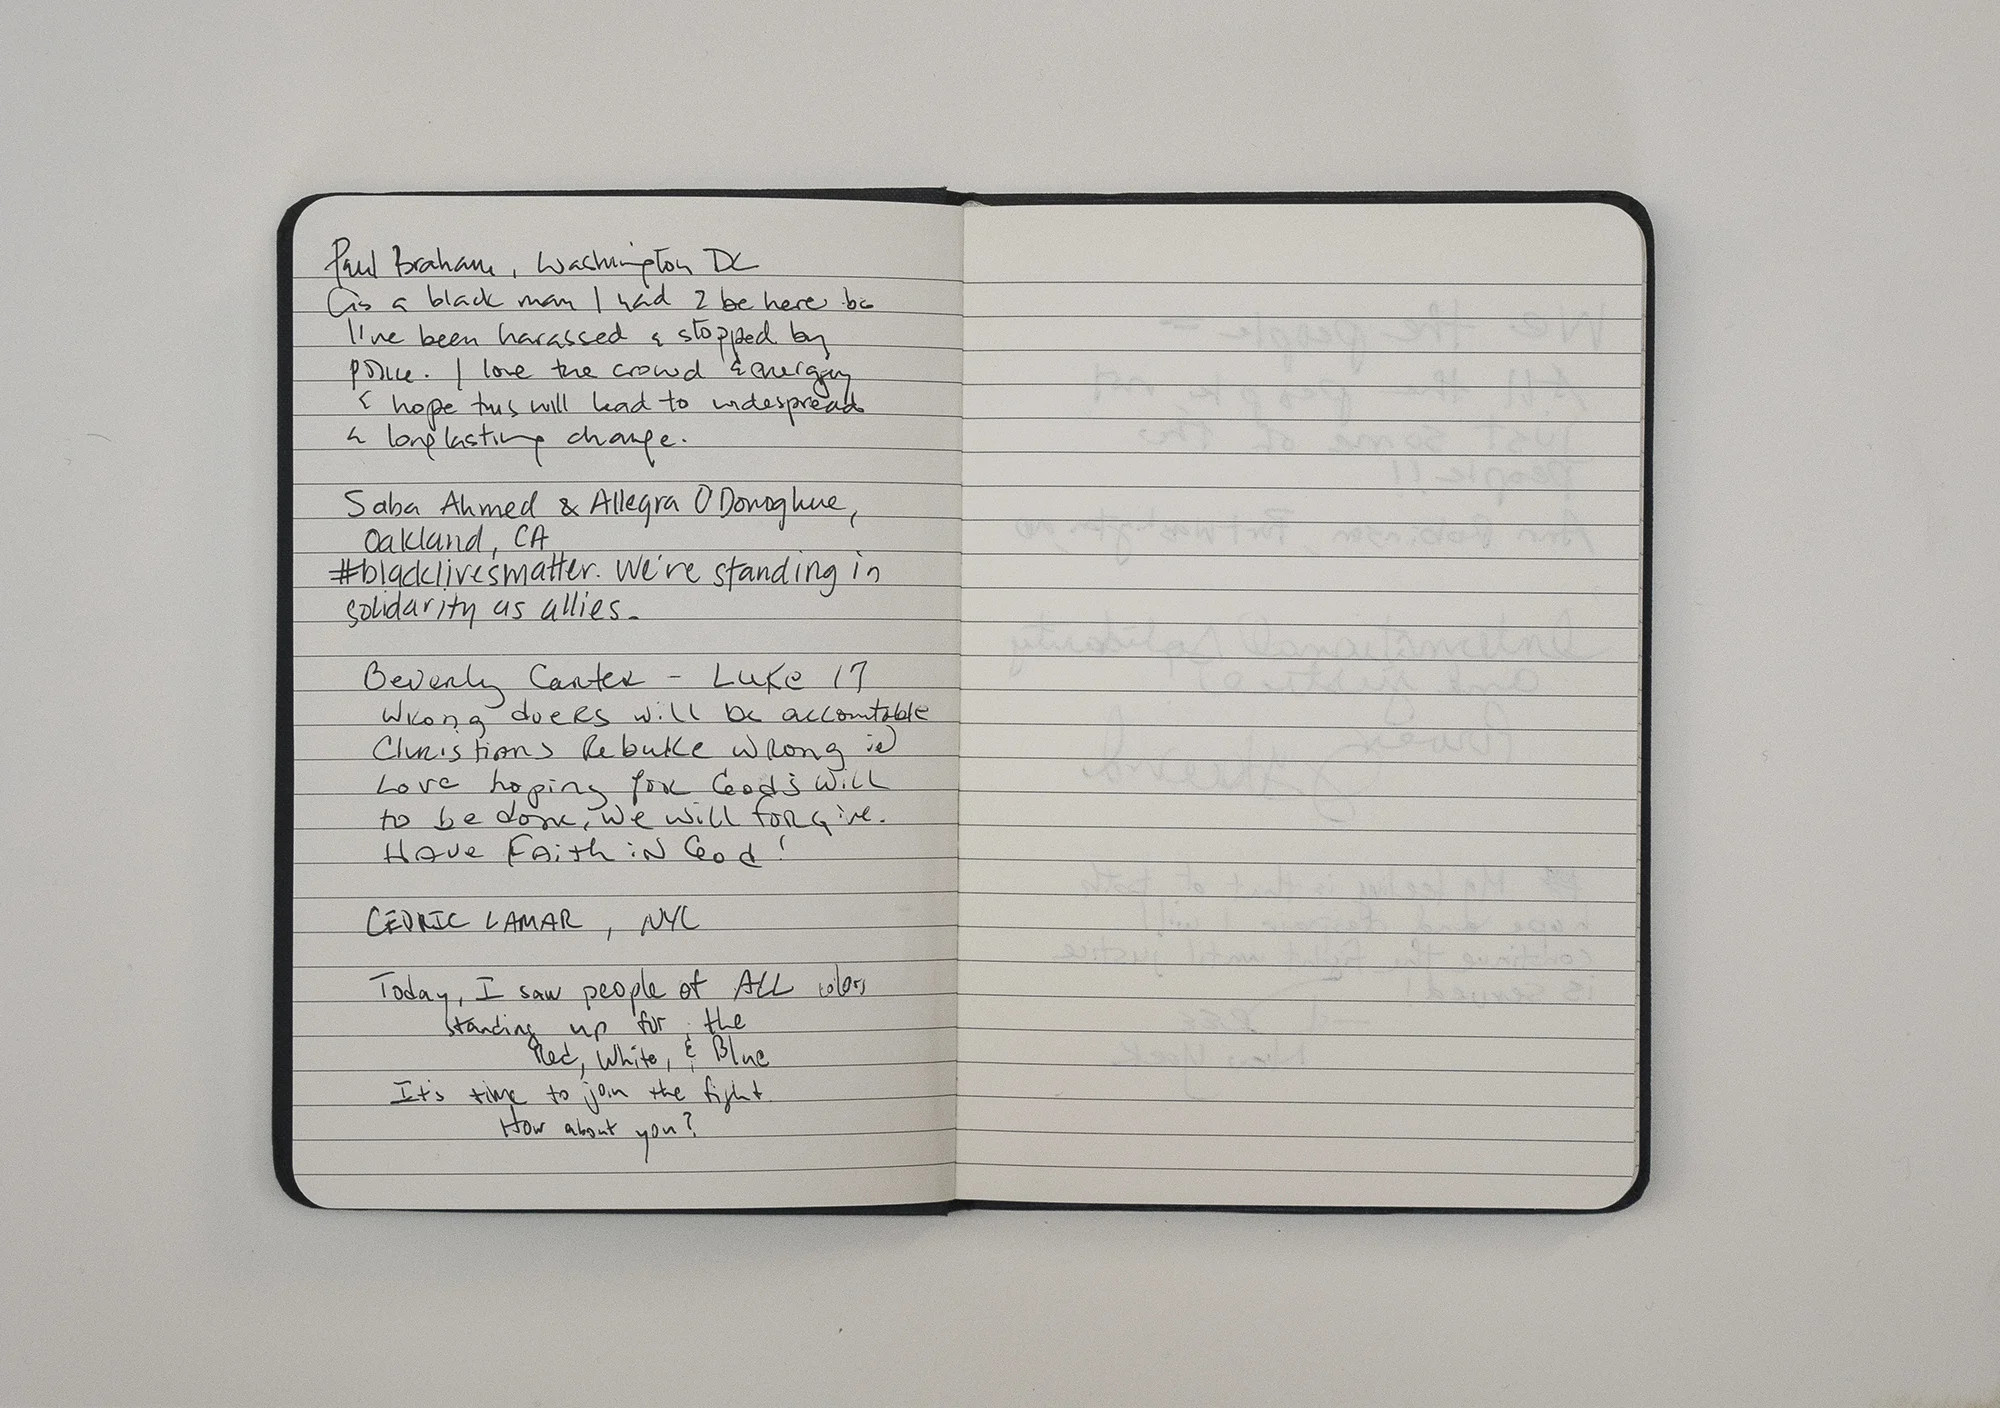 Paul Braham, Washington DC
as a black man I had 2 be here bc
I've been harassed & stopped by
police. I love the crowd & energy
& hope this will lead to widespread
& longlasting change.
Saba Ahmed & Allegra O'Donoghue,
Oakland, CA
#blacklivesmatter. We're standing in
solidarity as allies.
Beverly Carter - Luke 17
Wrong doers will be accountable
Christians Rebuke wrong in
Love hoping for God's will
to be done, we will forgive.
Have Faith in God!
CEDRIC LAMAR, NYC
Today, I saw people of ALL colors
standing up for the
Red, White, & Blue
It's time to join the fight
How about you?
We the people -
All the people not
just some of the
people!!
Ann Robinson, Fort Washington, MD
International Solidarity
and justice!
My feeling is that of both
hope and despair. I will
continue the fight until justice
is served!
New York